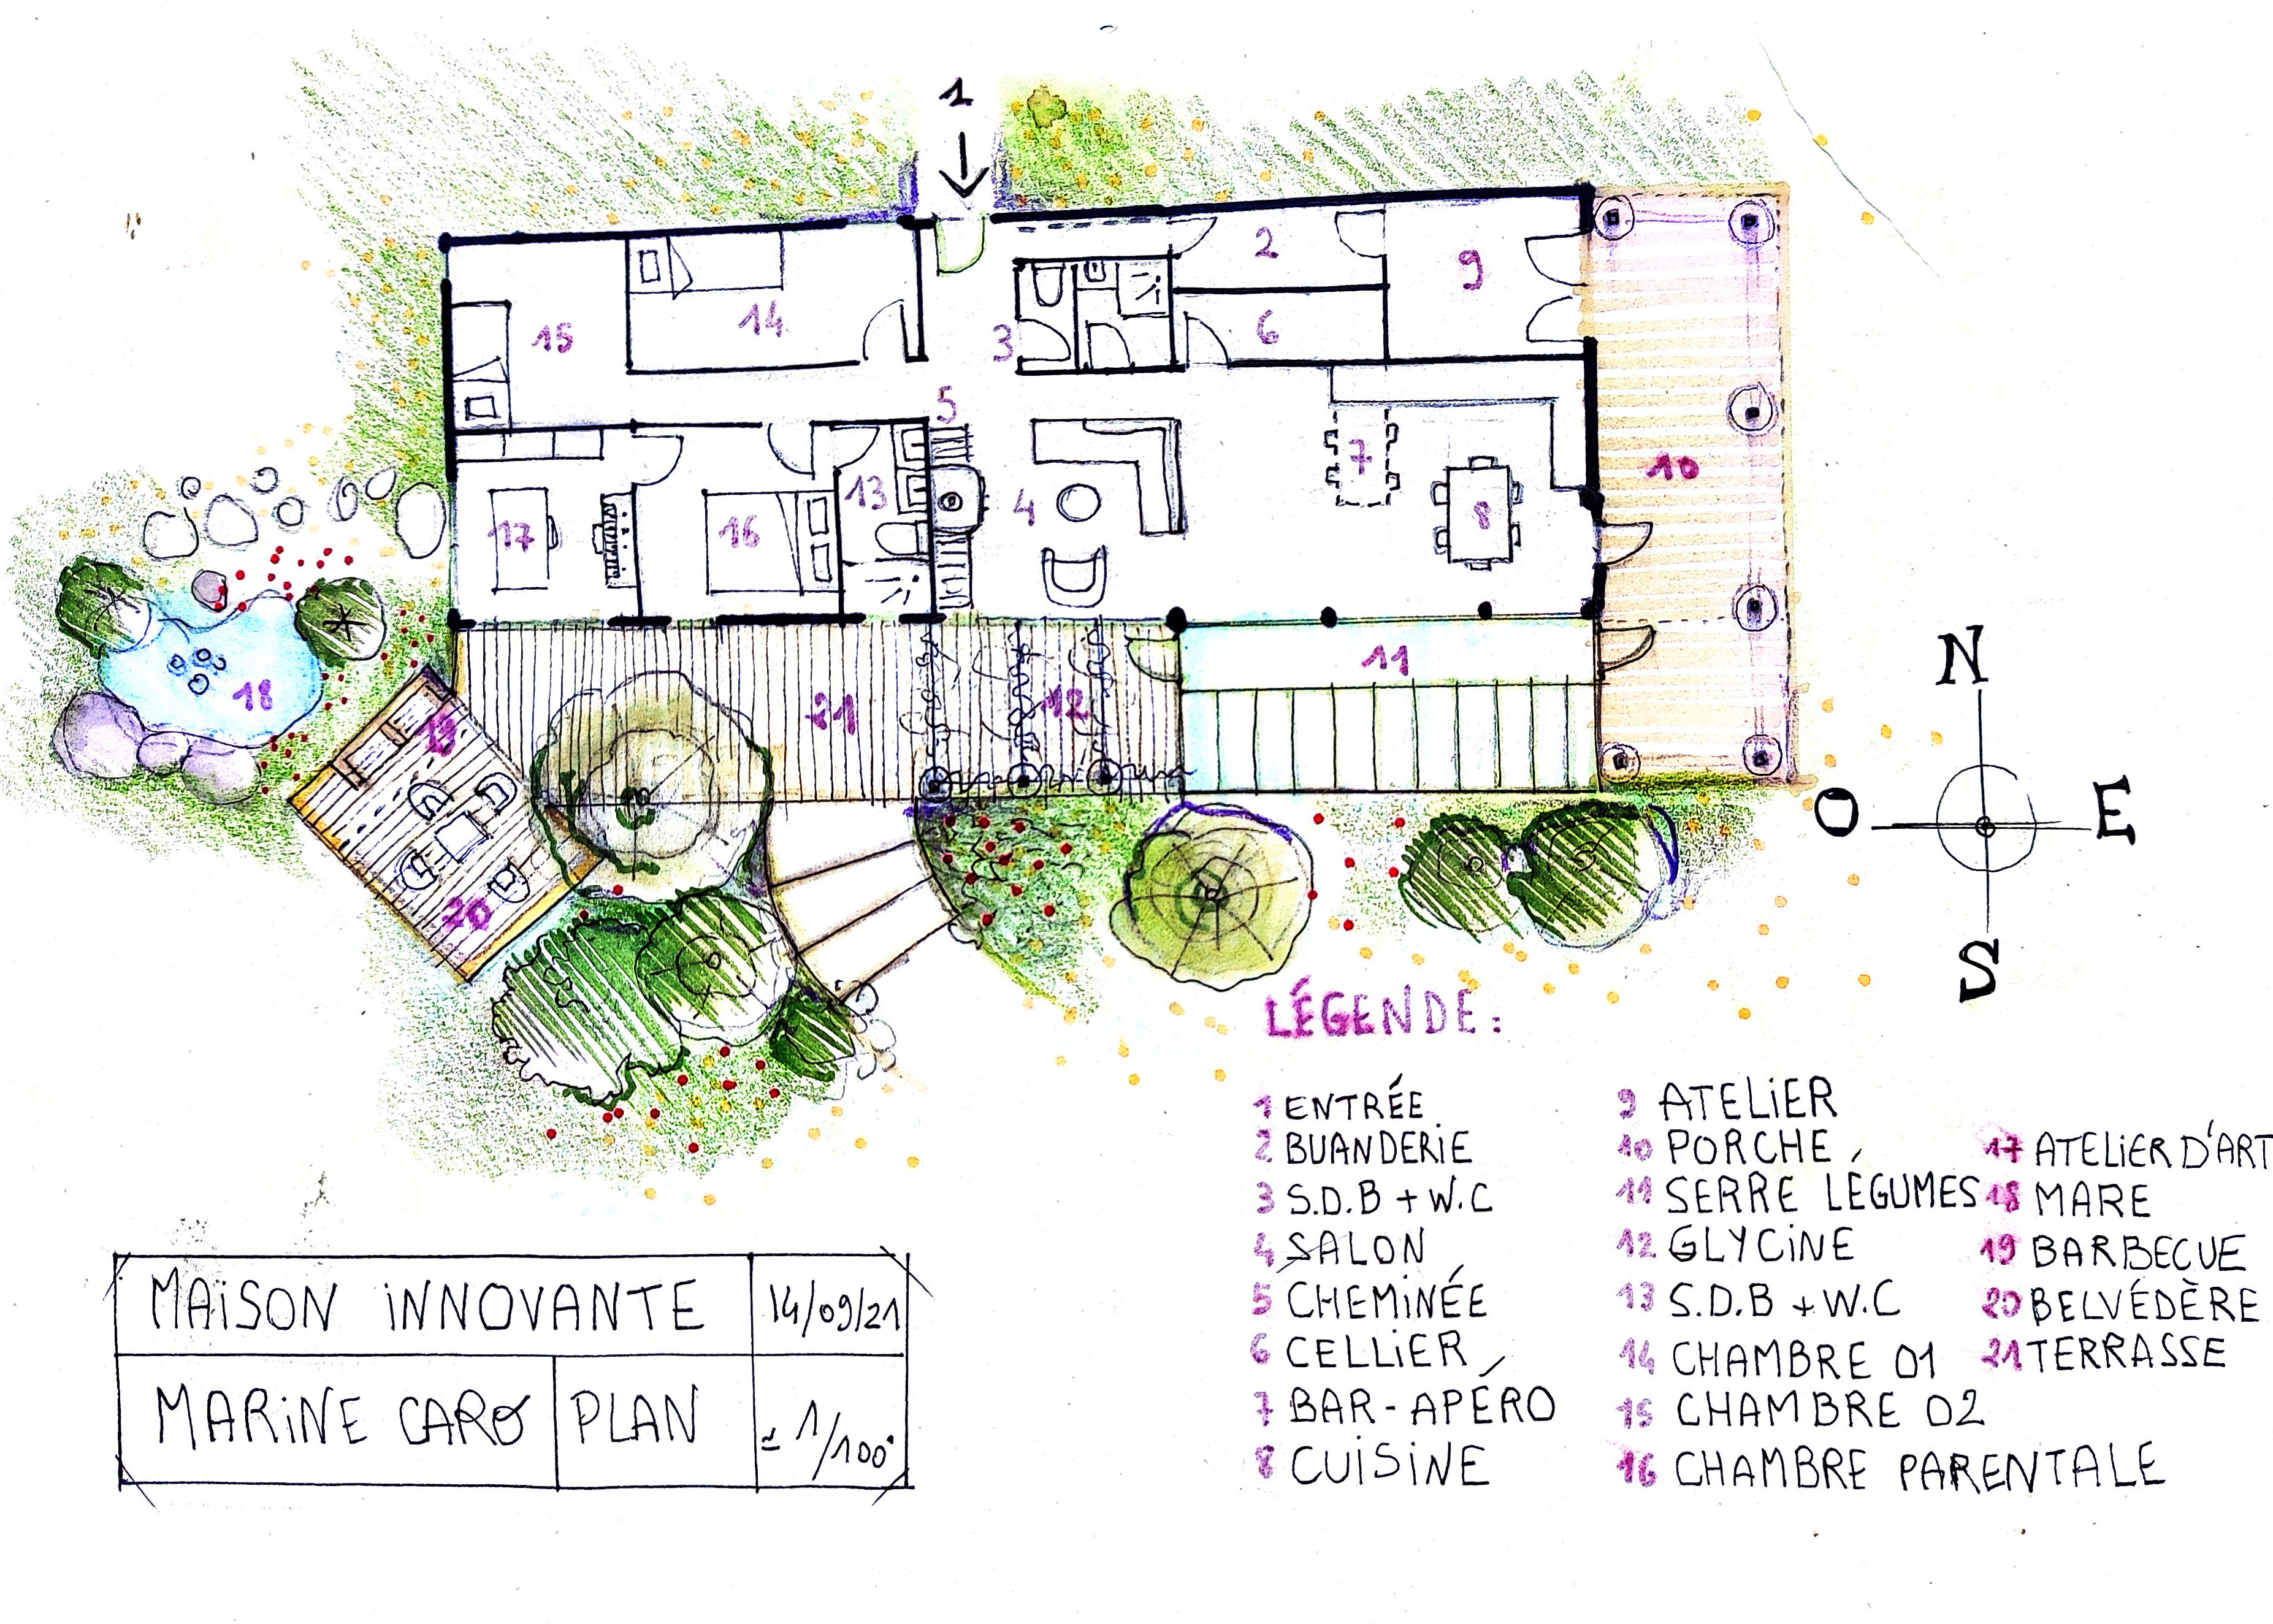 1
2
9
15
14
3
6
5
7
10
17
16
13
4
8
11
18
19
21
12
20
N
O
E
S
LÉGENDE:
1 ENTRÉE
2 BUANDERIE
3 S.D.B + W.C
4 SALON
5 CHEMINÉE
6 CELLIER
7 BAR-APÉRO
8 CUISINE
9 ATELIER
10 PORCHE
11 SERRE LÉGUMES
12 GLYCINE
13 S.D.B + W.C
14 CHAMBRE 01
15 CHAMBRE 02
16 CHAMBRE PARENTALE
17 ATELIER D'ART
18 MARE
19 BARBECUE
20 BELVÉDÈRE
21 TERRASSE
MAISON INNOVANTE
14/09/21
MARINE CARO
PLAN
± 1/100°